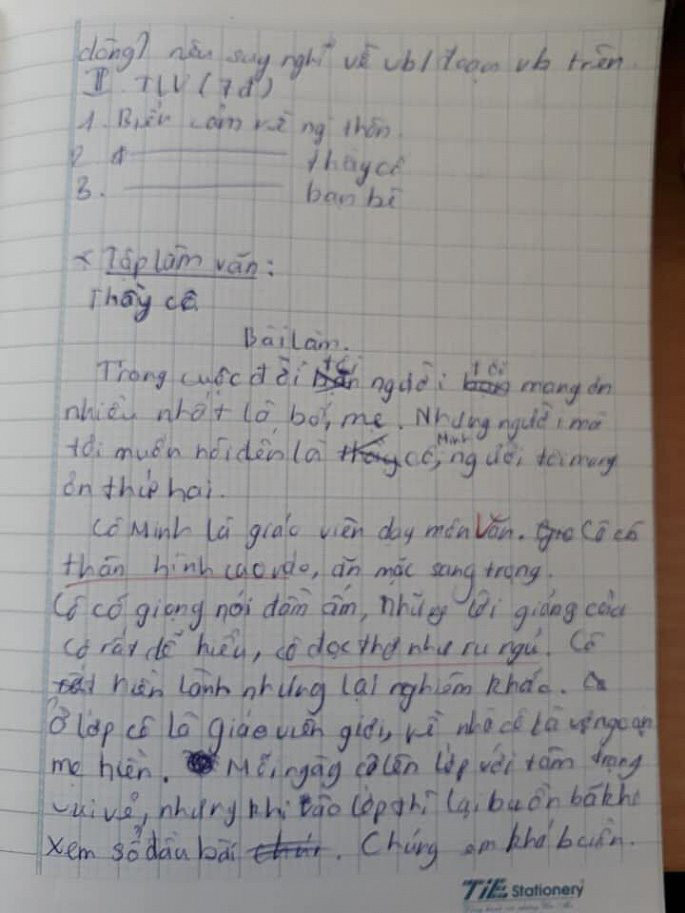 dòng) nêu suy nghĩ về vb/đoạn vb trên.
II. TLV (7đ)
1. Biểu cảm về ng thân
2. thầy cô
3. bạn bè
* Tập làm văn:
Thầy cô
Bài Làm.
Trong cuộc đời tôi người tôi mang ơn
nhiều nhất là bố, mẹ. Nhưng người mà
tôi muốn nói đến là cô Minh, người tôi mang
ơn thứ hai.
Cô Minh là giáo viên dạy môn Văn. Cô có
thân hình cao ráo, ăn mặc sang trọng.
Cô có giọng nói đầm ấm, những lời giảng của
cô rất dễ hiểu, cô đọc thơ như ru ngủ. Cô
hiền lành nhưng lại nghiêm khắc.
Ở lớp cô là giáo viên giỏi, về nhà cô là vợ ngoan
mẹ hiền. Mỗi ngày cô lên lớp với tâm trạng
vui vẻ, nhưng khi vào lớp thì lại buồn bã khi
xem sổ đầu bài. Chúng em khá buồn.
TiE Stationery